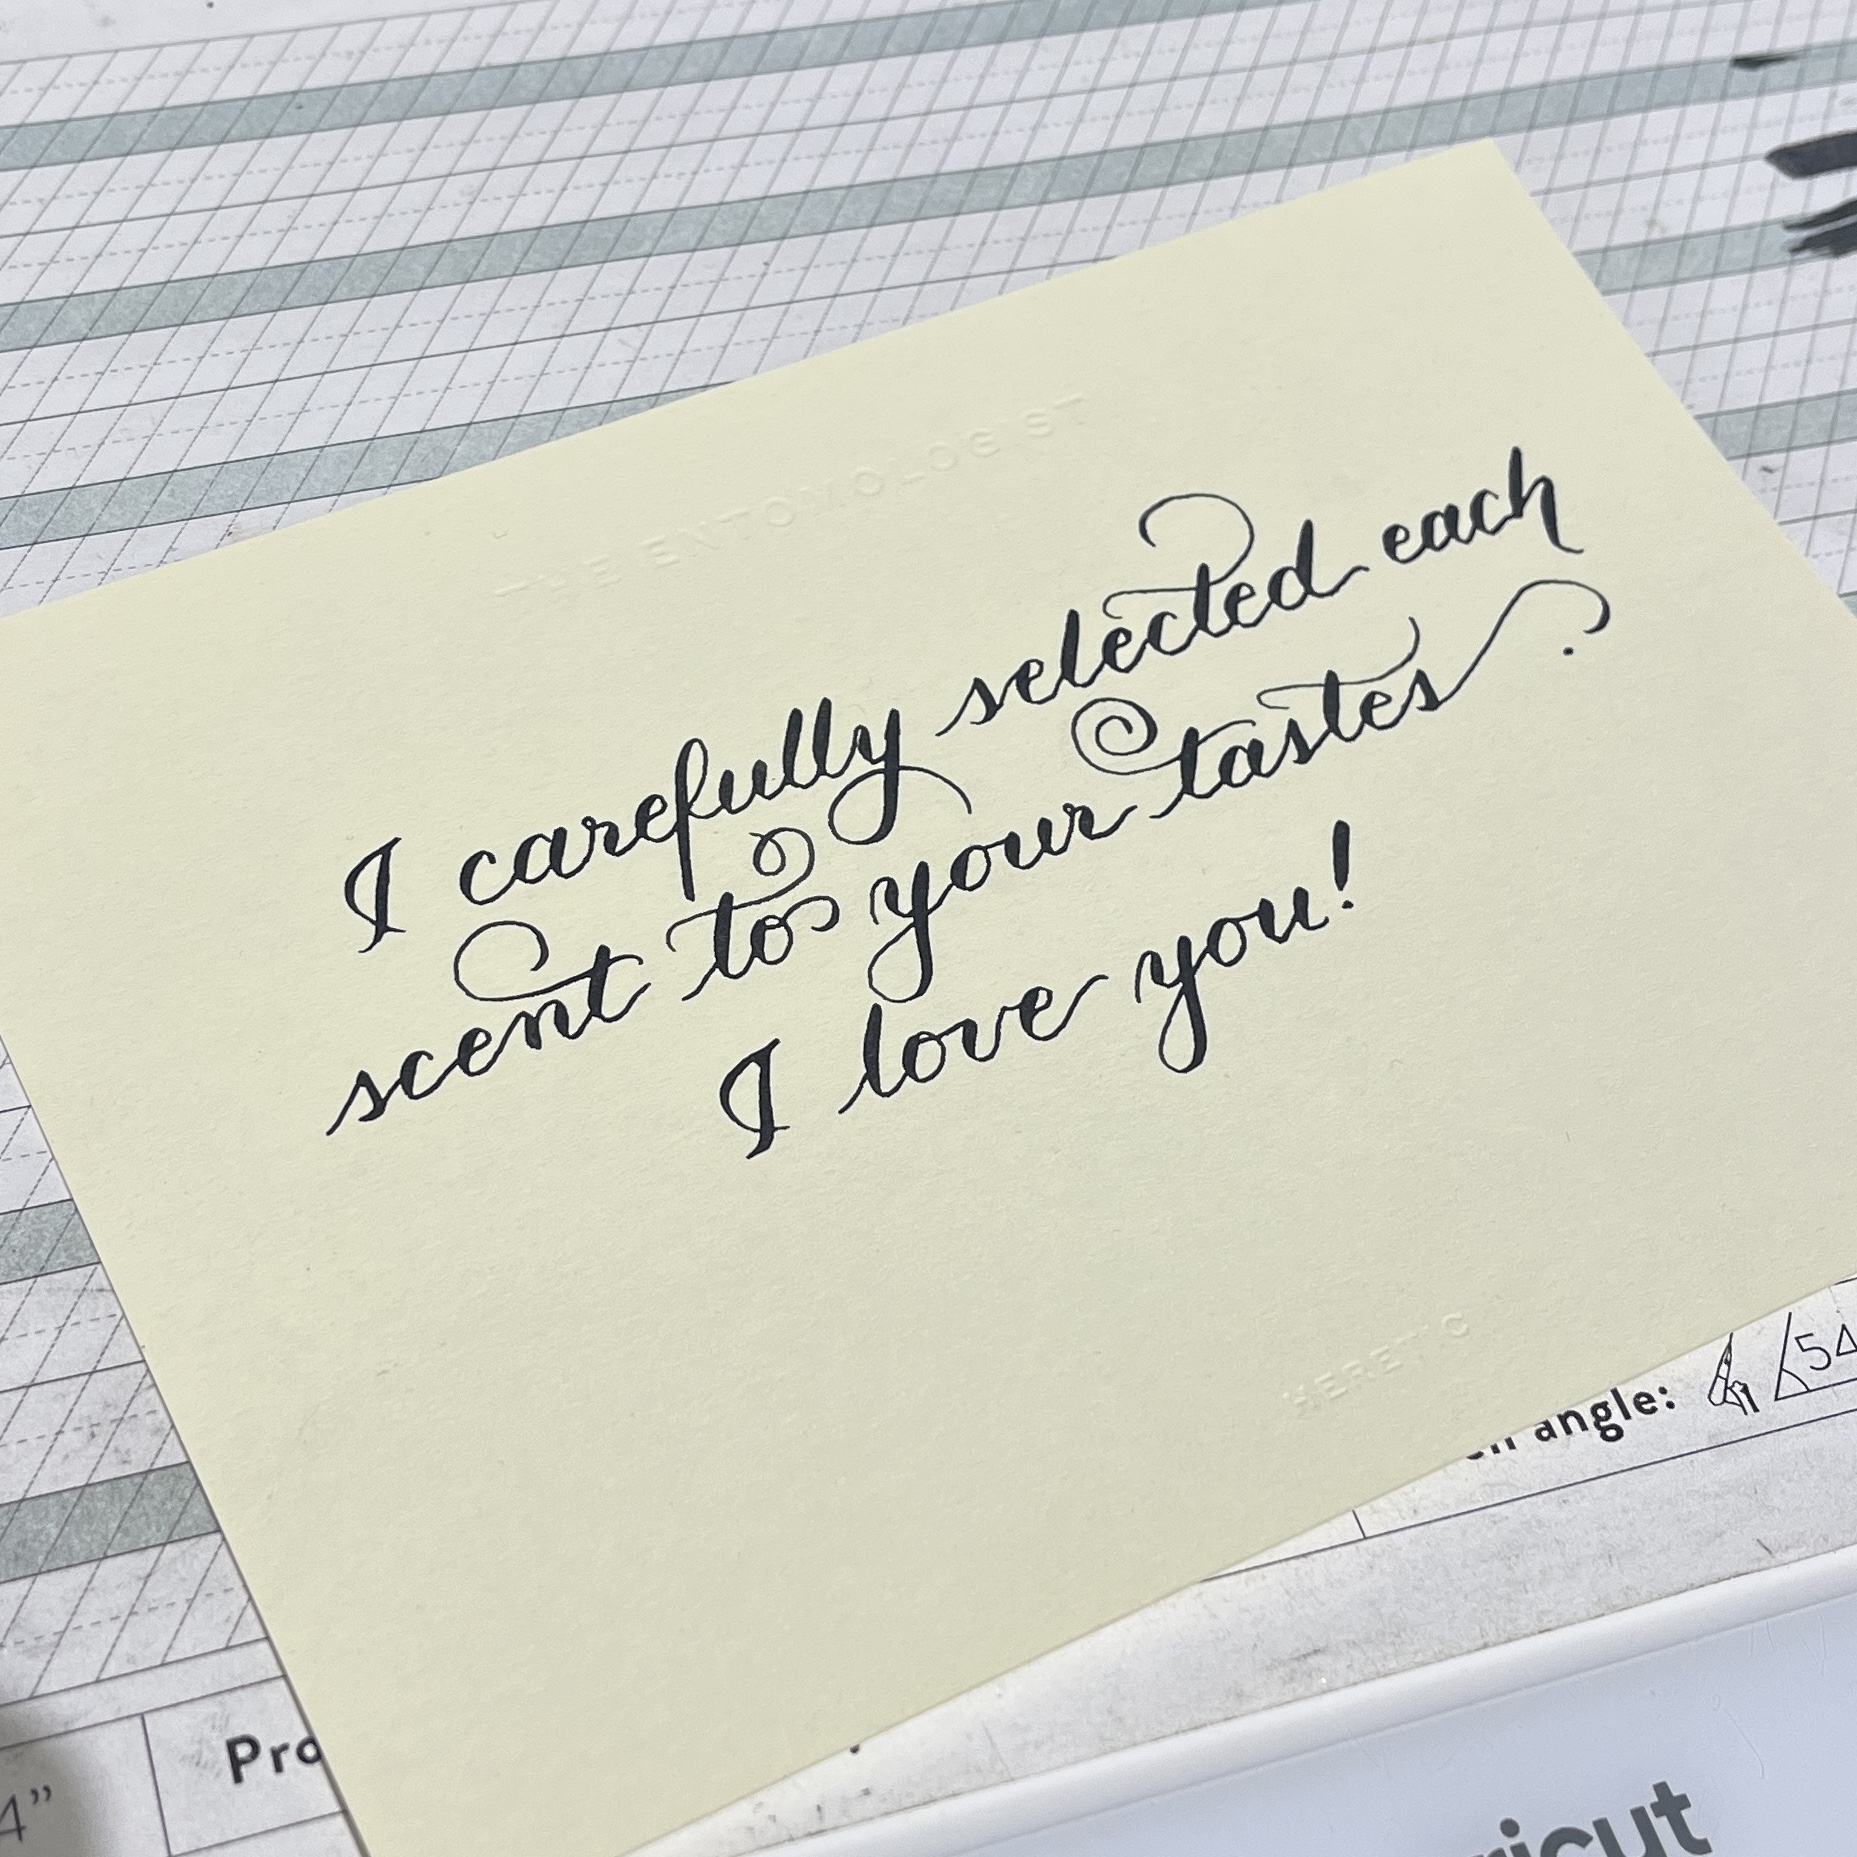 THE ENTOMOLOGIST
I carefully selected each
scent to your tastes.
I love you!
HERETIC
angle: 54
4”